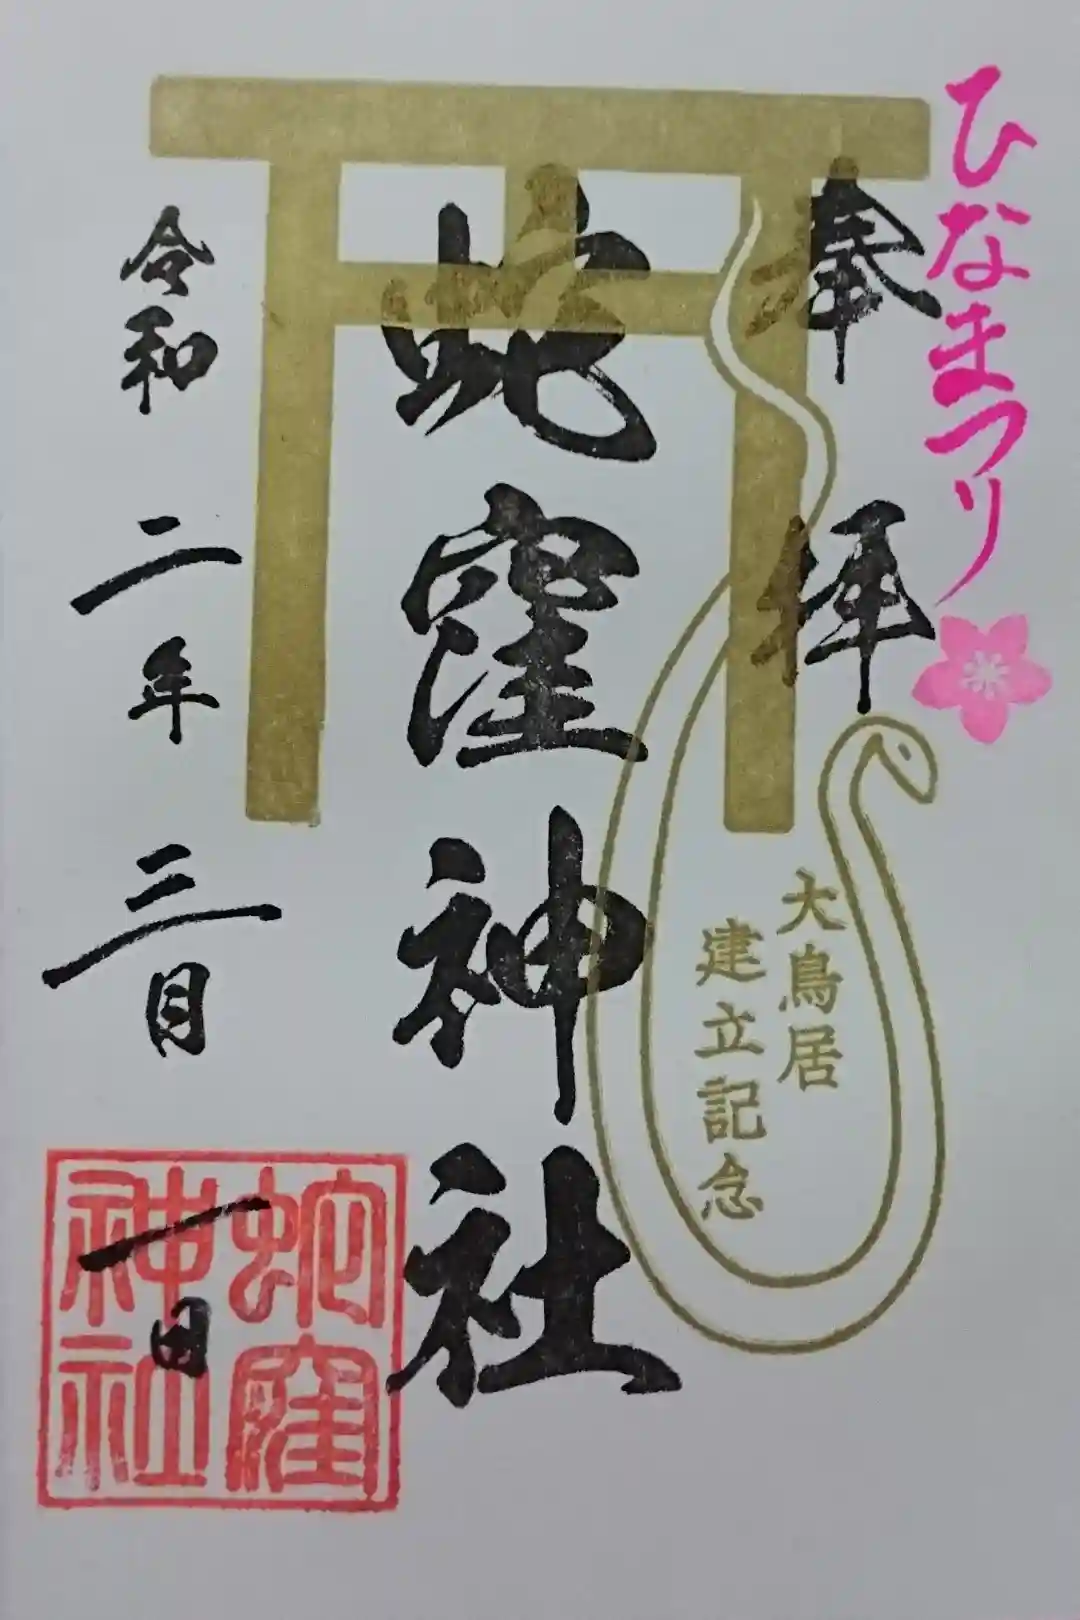 ひなまつり
奉拝
大鳥居
建立記念
蛇窪神社
令和二年三月一日
蛇窪
神社